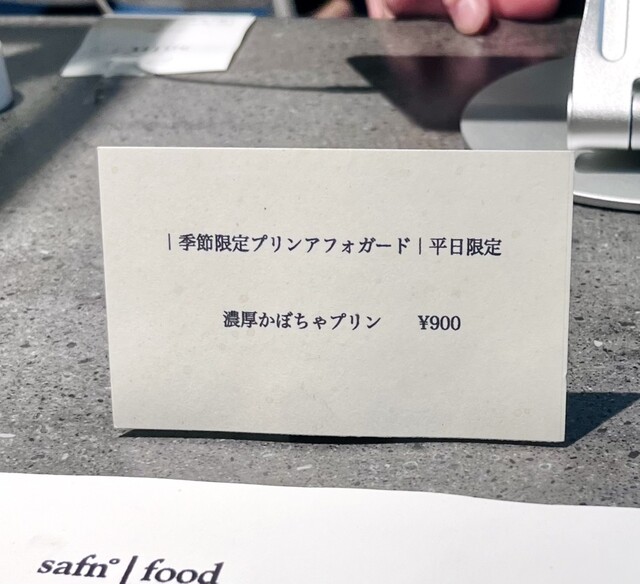 |季節限定プリンアフォガード|平日限定
濃厚かぼちゃプリン ¥900
safn°/food